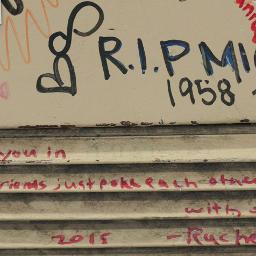 B
R.I.P MI
1958 -
you in
riends just poke each other
with
2015 - Rache